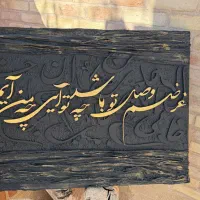 غرضم وصل تو باشد چه تو آیی چه من آیم